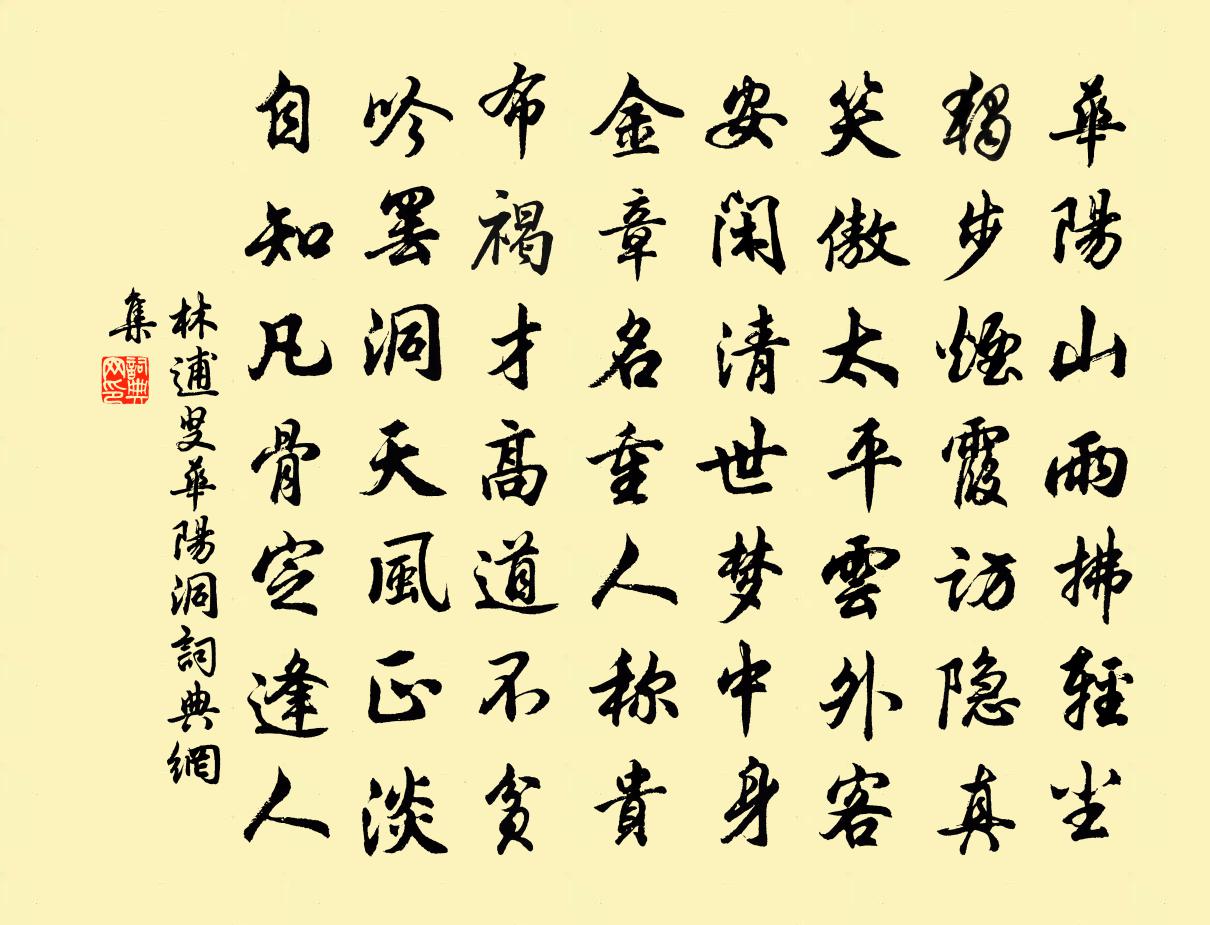 華陽山雨拂輕尘
獨步煙霞访隐真
笑傲太平雲外客
安闲清世梦中身
金章名重人称貴
布褐才高道不贫
吟罢洞天風正淡
自知凡骨定逢人
林逋叟華陽洞詞典網
集
詞典
网印